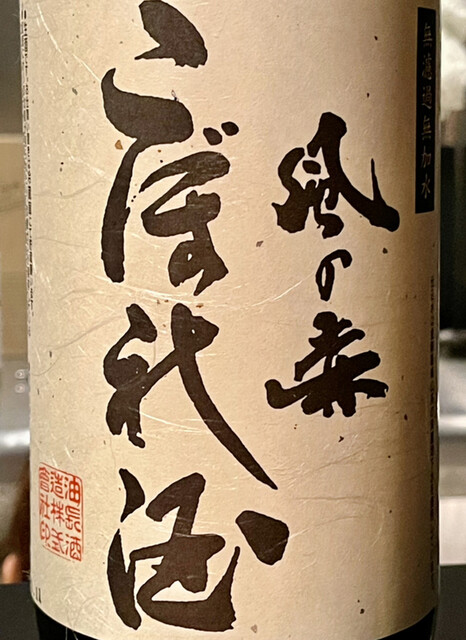 無濾過無加水
風の森
こぼれ酒
油長酒
造株式
會社印